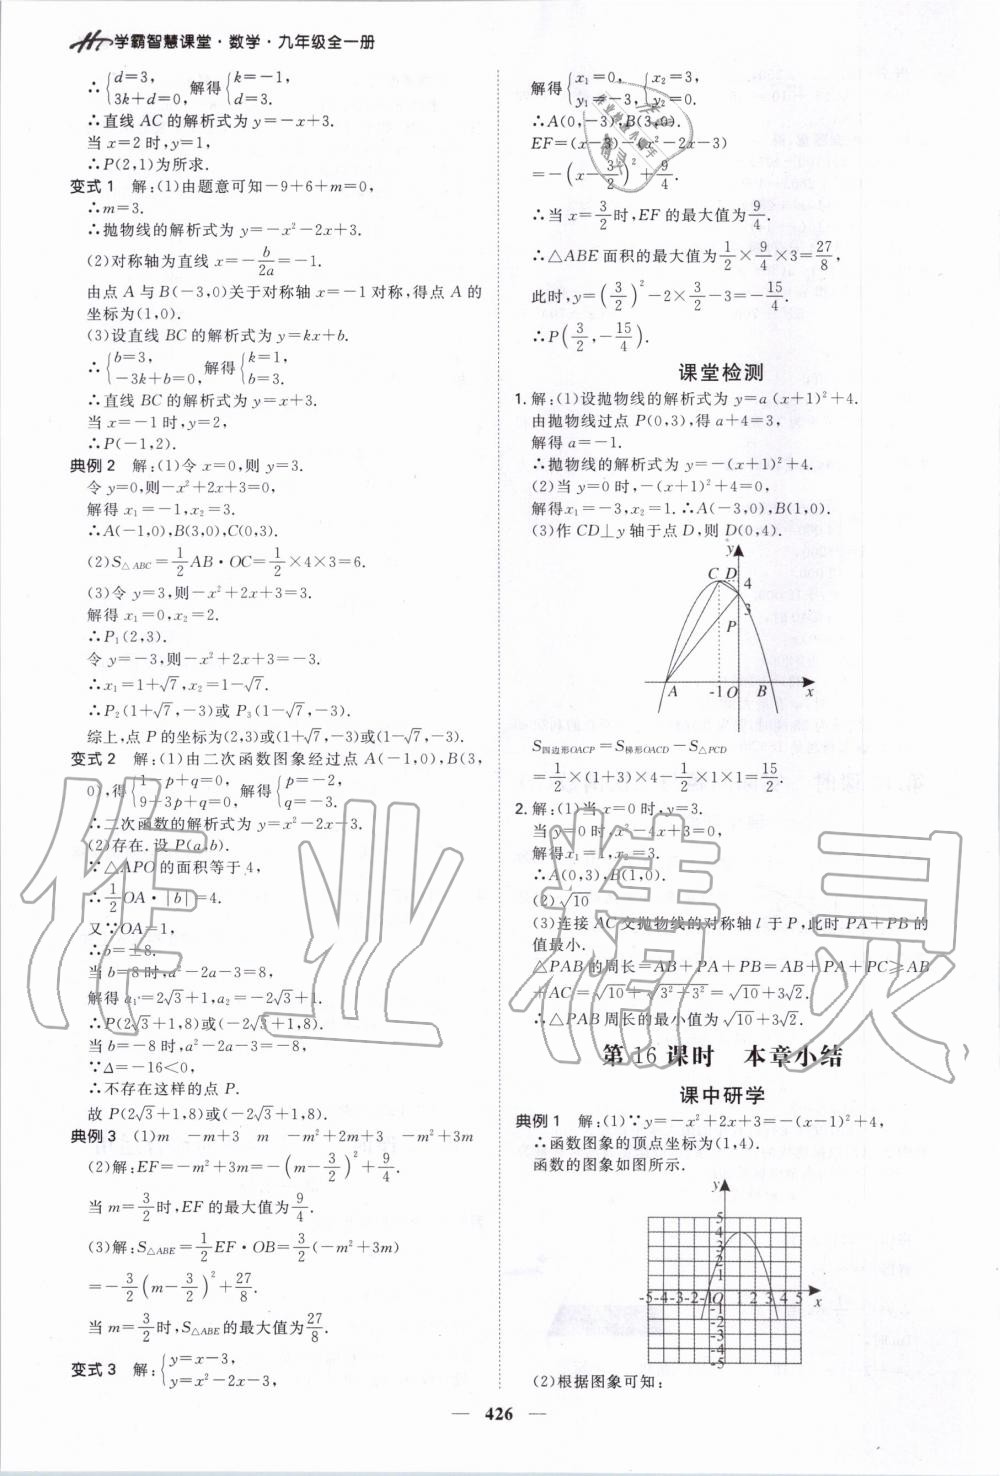 学霸智慧课堂·数学·九年级全一册
∴{d=3, 3k+d=0, 解得{k=-1, d=3.
∴直线 AC 的解析式为 y=-x+3.
当 x=2 时,y=1,
∴P(2,1)为所求.
变式 1 解:(1)由题意可知-9+6+m=0,
∴m=3.
∴抛物线的解析式为 y=-x²-2x+3.
(2)对称轴为直线 x=-b/2a=-1.
由点 A 与 B(-3,0)关于对称轴 x=-1 对称,得点 A 的
坐标为(1,0).
(3)设直线 BC 的解析式为 y=kx+b.
∴{b=3, -3k+b=0, 解得{k=1, b=3.
∴直线 BC 的解析式为 y=x+3.
当 x=-1 时,y=2,
∴P(-1,2).
典例 2 解:(1)令 x=0,则 y=3.
令 y=0,则-x²+2x+3=0,
解得 x₁=-1,x₂=3.
∴A(-1,0),B(3,0),C(0,3).
(2)S△ABC=1/2 AB·OC=1/2×4×3=6.
(3)令 y=3,则-x²+2x+3=3.
解得 x₁=0,x₂=2.
∴P₁(2,3).
令 y=-3,则-x²+2x+3=-3.
∴x₁=1+√7,x₂=1-√7.
∴P₂(1+√7,-3)或 P₃(1-√7,-3).
综上,点 P 的坐标为(2,3)或(1+√7,-3)或(1-√7,-3).
变式 2 解:(1)由二次函数图象经过点 A(-1,0),B(3,
0),得{1-p+q=0, 9+3p+q=0, 解得{p=-2, q=-3.
∴二次函数的解析式为 y=x²-2x-3.
(2)存在. 设 P(a,b).
∵△APO 的面积等于 4,
∴1/2 OA·|b|=4.
又∵OA=1,
∴b=±8.
当 b=8 时,a²-2a-3=8,
解得 a₁=2√3+1,a₂=-2√3+1.
∴P(2√3+1,8)或(-2√3+1,8).
当 b=-8 时,a²-2a-3=-8,
∵Δ=-16<0,
∴不存在这样的点 P.
故 P(2√3+1,8)或(-2√3+1,8).
典例 3 (1)m -m+3 m -m²+2m+3 -m²+3m
(2)解:EF=-m²+3m=-(m-3/2)²+9/4.
当 m=3/2时,EF 的最大值为9/4.
(3)解:S△ABE=1/2 EF·OB=3/2(-m²+3m)
=-3/2(m-3/2)²+27/8.
当 m=3/2时,S△ABE的最大值为27/8.
变式 3 解:{y=x-3, y=x²-2x-3,
解得{x₁=0, y₁=-3, {x₂=3, y₂=0.
∴A(0,-3),B(3,0).
EF=(x-3)-(x²-2x-3)
=-(x-3/2)²+9/4.
∴当 x=3/2时,EF 的最大值为9/4.
∴△ABE 面积的最大值为1/2×9/4×3=27/8,
此时,y=(3/2)²-2×3/2-3=-15/4.
∴P(3/2,-15/4).
课堂检测
1. 解:(1)设抛物线的解析式为 y=a(x+1)²+4.
由抛物线过点 P(0,3),得 a+4=3,
解得 a=-1.
∴抛物线的解析式为 y=-(x+1)²+4.
(2)当 y=0 时,-(x+1)²+4=0,
解得x₁=-3,x₂=1.∴A(-3,0),B(1,0).
(3)作 CD⊥y 轴于点 D,则 D(0,4).
y
C D 4
3
P
A -1 O B x
S四边形OACP=S梯形OACD-S△PCD
=1/2×(1+3)×4-1/2×1×1=15/2.
2. 解:(1)当 x=0 时,y=3.
当 y=0 时,x²-4x+3=0,
解得x₁=1,x₂=3.
∴A(0,3),B(1,0).
(2)√10
(3)连接 AC 交抛物线的对称轴 l 于 P,此时 PA+PB 的
值最小.
△PAB 的周长=AB+PA+PB=AB+PA+PC≥AB
+AC=√10+√3²+3²=√10+3√2.
∴△PAB 周长的最小值为 √10+3√2.
第 16 课时 本章小结
课中研学
典例 1 解:(1)∵y=-x²+2x+3=-(x-1)²+4,
∴函数图象的顶点坐标为(1,4).
函数的图象如图所示.
y
5
4
3
2
1
-5-4-3-2-1O 1 2 3 4 5 x
-1
-2
-3
-4
-5
(2)根据图象可知:
— 426 —
作业精灵